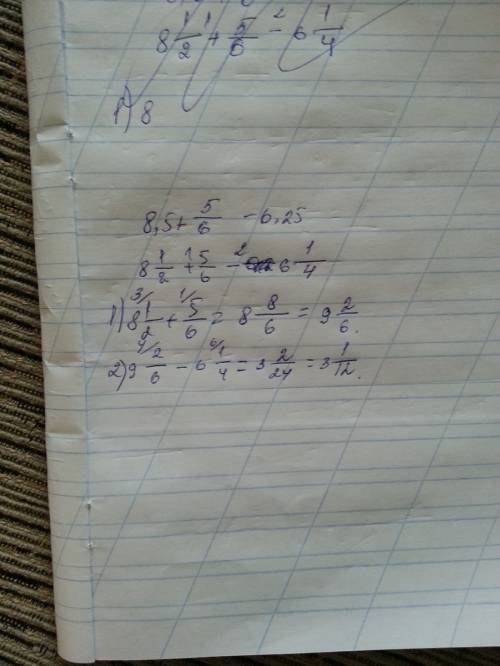 8 1/2 + 5/6 - 6 1/4
1) 8
8,5 + 5/6 - 6,25
8 1/2 + 5/6 - 6 1/4
1) 8 1/2 + 5/6 = 8 8/6 = 9 2/6.
2) 9 2/6 - 6 1/4 = 3 2/24 = 3 1/12.